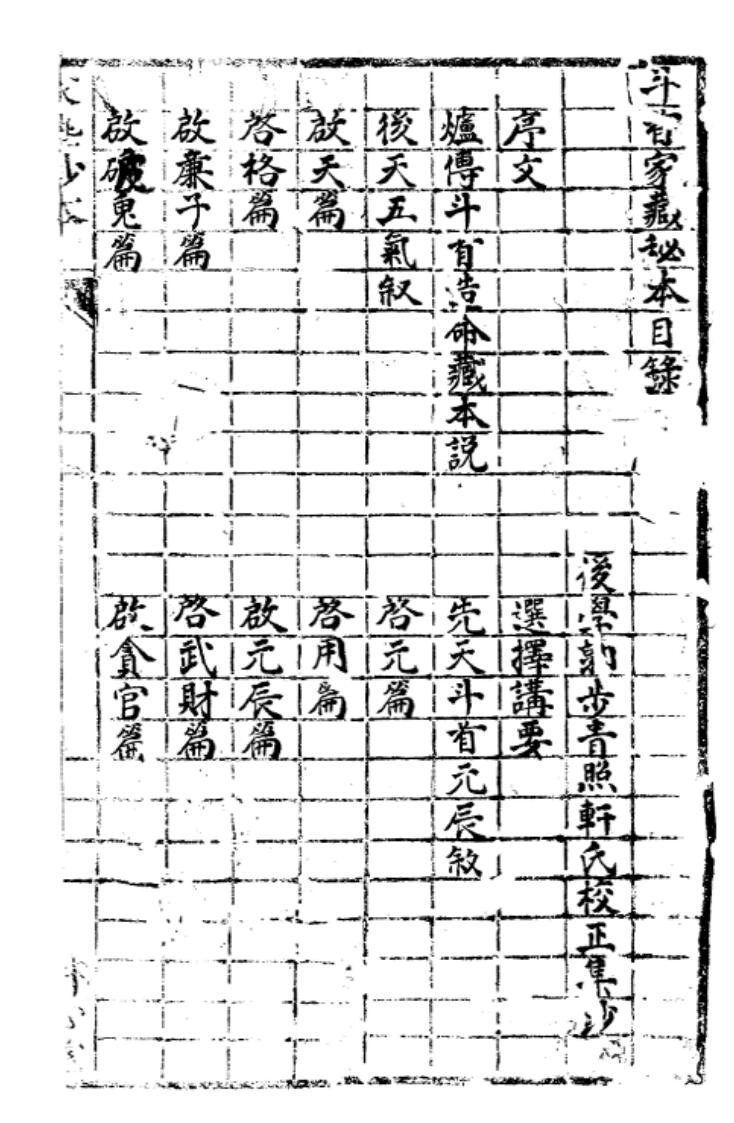 斗首家藏秘本目錄
後學郭步青照軒氏校正集抄
序文
選擇講要
爐傳斗首造命藏本說
先天斗首元辰敘
後天五氣敘
啟元篇
啟天篇
啓用篇
啓格篇
啟元辰篇
啟廉子篇
啓武財篇
啟破鬼篇
啟貪官篇